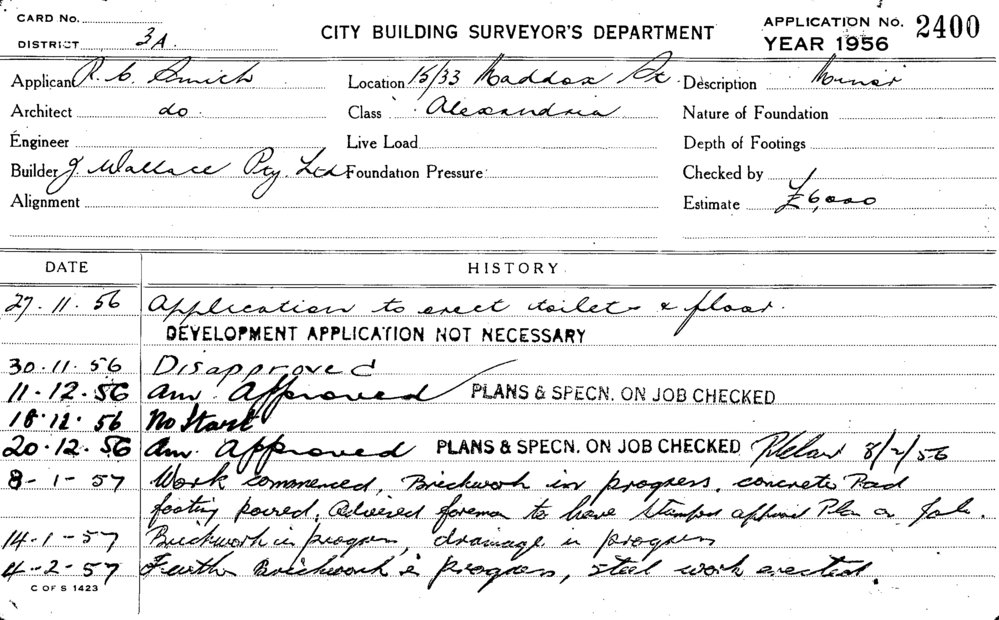 CARD No.
DISTRICT 3A.
CITY BUILDING SURVEYOR'S DEPARTMENT
APPLICATION No. 2400
YEAR 1956
Applicant R. C. Smith
Location 15/33 Maddox St.
Description Minor
Architect do.
Class Alexandria
Nature of Foundation
Engineer
Live Load
Depth of Footings
Builder J. Wallace Pty. Ltd
Foundation Pressure
Checked by
Alignment
Estimate £6,000
DATE HISTORY
27.11.56 Application to erect toilets & floor.
DEVELOPMENT APPLICATION NOT NECESSARY
30.11.56 Disapproved
11.12.56 Am. Approved PLANS & SPECN. ON JOB CHECKED
18.12.56 No Start
20.12.56 Am. Approved PLANS & SPECN. ON JOB CHECKED 8/2/56
8-1-57 Work commenced, Brickwork in progress, concrete Pad
footing poured. Advised foreman to have Stamped approved Plan on Job.
14-1-57 Brickwork in progress, drainage in progress
4-2-57 Further Brickwork in progress, steel work erected.
C OF S 1423